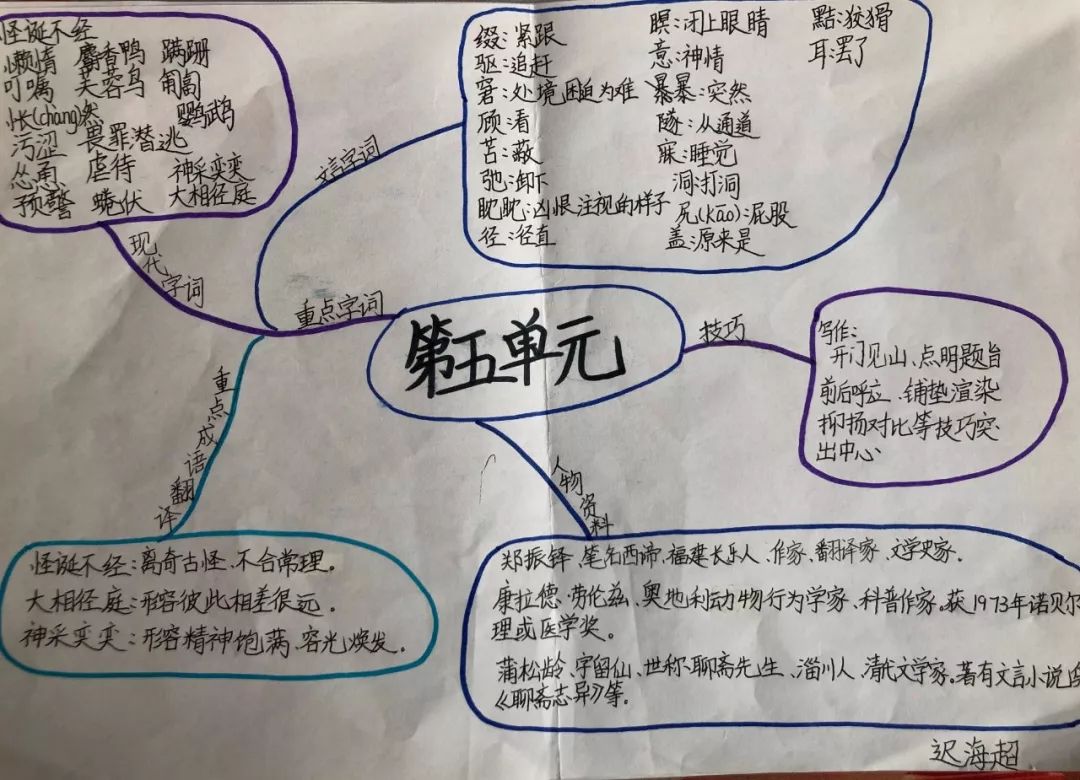 第五单元
重点字词
现代字词
怪诞不经
懒惰 麝香鸭 蹒跚
叮嘱 芙蓉鸟 匍匐
怅(chang)然 鹦鹉
污涩 畏罪潜逃
怂恿 虐待 神采奕奕
预警 蜷伏 大相径庭
文言字词
缀:紧跟 瞑:闭上眼睛 黠:狡猾
驱:追赶 意:神情 耳:罢了
窘:处境困迫为难 暴:突然
顾:看 隧:从通道
苫:蔽 寐:睡觉
弛:卸下 洞:打洞
眈眈:凶恨注视的样子 尻(kāo):屁股
径:径直 盖:原来是
技巧
写作:
开门见山、点明题旨
前后呼应、铺垫渲染
抑扬对比等技巧突
出中心
重点成语翻译
怪诞不经:离奇古怪、不合常理。
大相径庭:形容彼此相差很远。
神采奕奕:形容精神饱满、容光焕发。
人物资料
郑振铎、笔名西谛、福建长乐人、作家、翻译家、文学史家。
康拉德·劳伦兹、奥地利动物行为学家、科普作家。获1973年诺贝尔
理或医学奖。
蒲松龄、字留仙、世称聊斋先生、淄川人、清代文学家。著有文言小说
《聊斋志异》等。
迟海超